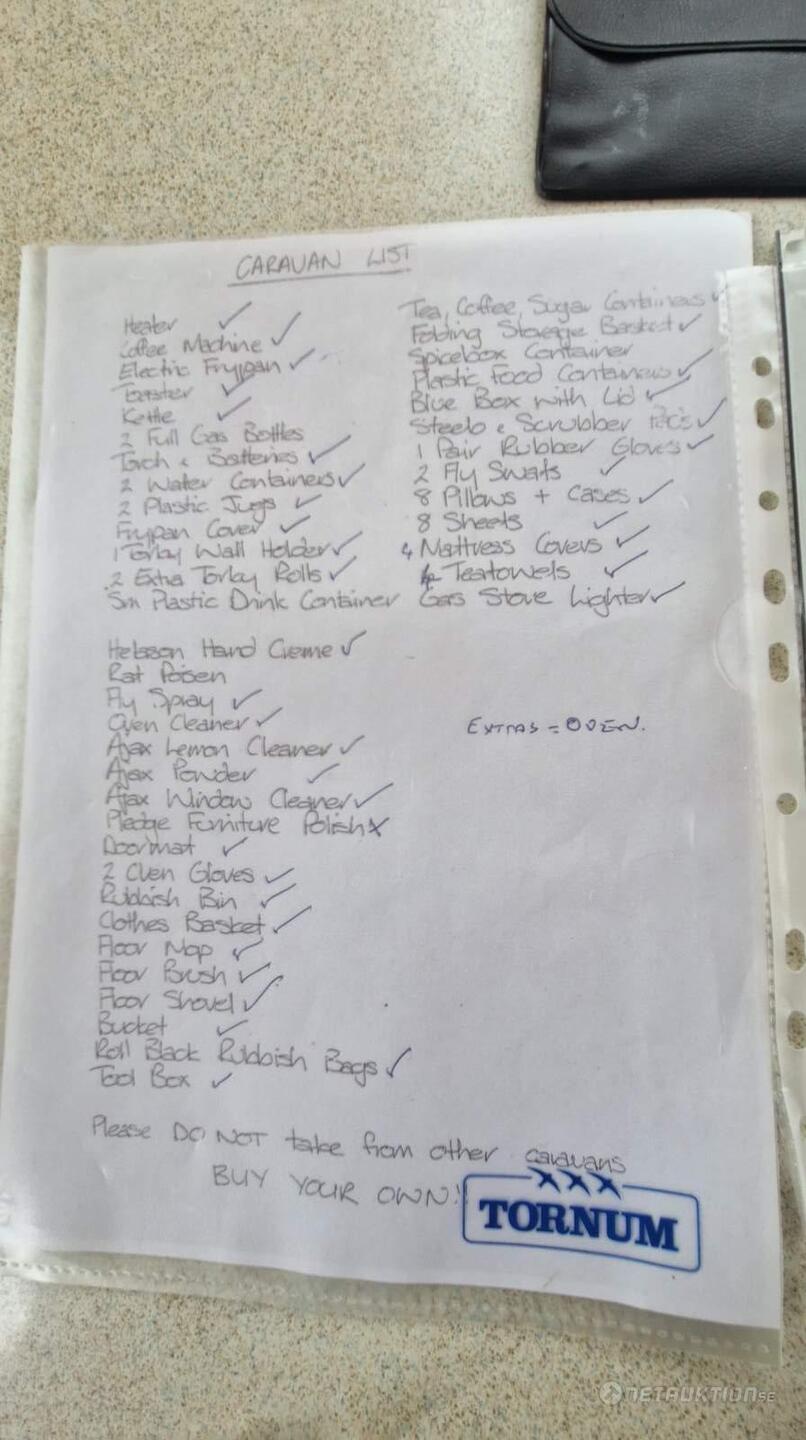 CARAVAN LIST
Heater ✓
Coffee Machine ✓
Electric Frypan ✓
Toaster ✓
Kettle ✓
2 Full Gas Bottles
Torch & Batteries ✓
2 Water Containers ✓
2 Plastic Jugs ✓
Frypan Cover ✓
1 Torky Wall Holder ✓
2 Extra Torky Rolls ✓
Sm Plastic Drink Container
Tea, Coffee, Sugar Containers ✓
Folding Storage Basket ✓
Spicebox Container
Plastic Food Containers ✓
Blue Box with Lid ✓
Steelo & Scrubber ✓
1 Pair Rubber Gloves ✓
2 Fly Swats ✓
8 Pillows + Cases ✓
8 Sheets ✓
4 Mattress Covers ✓
4 Teatowels ✓
Gas Stove Lighter ✓
Hand Creme ✓
Rat Poisen
Fly Spray ✓
Oven Cleaner ✓
Ajax Lemon Cleaner ✓
Ajax Powder ✓
Ajax Window Cleaner ✓
Pledge Furniture Polish x
Doormat ✓
2 Oven Gloves ✓
Rubbish Bin ✓
Clothes Basket ✓
Floor Mop ✓
Floor Brush ✓
Floor Shovel ✓
Bucket ✓
Roll Black Rubbish Bags ✓
Tool Box ✓
EXTRAS = OVEN.
Please DO NOT take from other caravans
BUY YOUR OWN!
XXX
TORNUM
NETAUKTION.SE